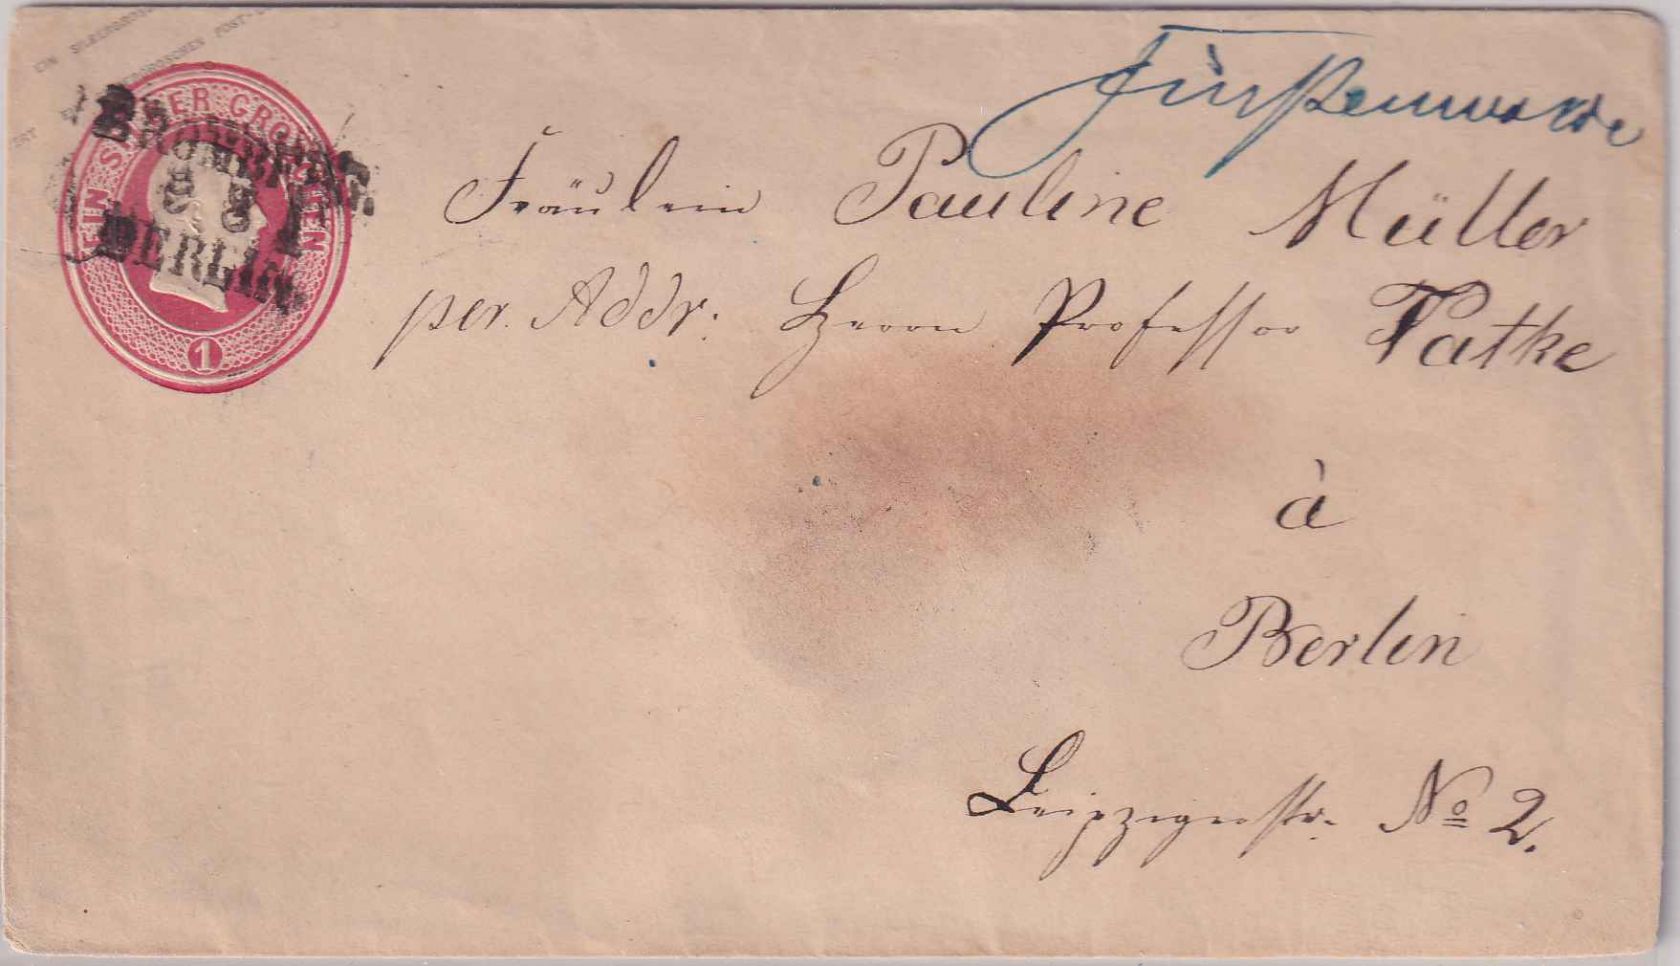 EIN SILBERGROSCHEN POST-
EIN SILBER GROSCHEN
1
BROMBERG
8 3 I
BERLIN
Fürstenwalde
Fräulein Pauline Müller
per. Addr: Herrn Professor Patke
à
Berlin
Leipzigerstr. No 2.